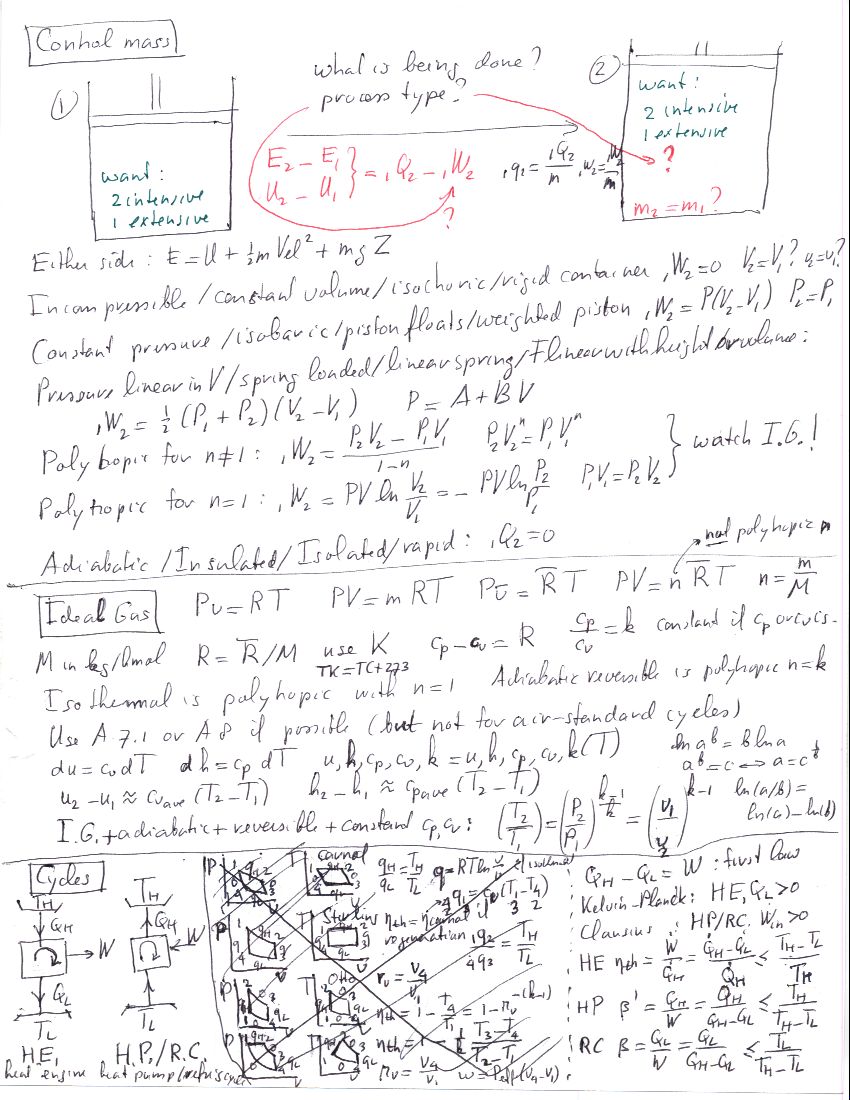 Control mass
what is being done?
process type?
①
②
want:
2 intensive
1 extensive
want:
2 intensive
1 extensive
?
m₂ = m₁?
E₂ – E₁
U₂ – U₁ } = ₁Q₂ – ₁W₂
?
₁q₂ = ₁Q₂/m , ₁w₂ = ₁W₂/m
Either side: E = U + ½ m Vel² + mg Z
Incompressible/constant volume/isochoric/rigid container ₁W₂ = 0 V₂ = V₁? v₂ = v₁?
Constant pressure/isobaric/piston floats/weighted piston ₁W₂ = P(V₂ – V₁) P₂ = P₁
Pressure linear in V/spring loaded/linear spring/F linear with height/or volume:
₁W₂ = ½ (P₁ + P₂)(V₂ – V₁) P = A + BV
Polytropic for n≠1: ₁W₂ = (P₂V₂ – P₁V₁)/(1–n) P₂V₂ⁿ = P₁V₁ⁿ
} watch I.G.!
Polytropic for n=1: ₁W₂ = PV ln V₂/V₁ = – PV ln P₂/P₁ P₁V₁ = P₂V₂
Adiabatic/Insulated/Isolated/rapid: ₁Q₂ = 0
not polytropic n
Ideal Gas Pv = RT PV = mRT Pv̄ = R̄T PV = nR̄T n = m/M
M in kg/kmol R = R̄/M use K cp – cv = R cp/cv = k constant if cp or cv is.
TK = TC + 273
Isothermal is polytropic with n=1 Adiabatic reversible is polytropic n=k
Use A 7.1 or A 8 if possible (but not for air-standard cycles)
du = cv dT dh = cp dT u, h, cp, cv, k = u, h, cp, cv, k(T) ln aᵇ = b ln a
aᵇ = c ↔ a = c^(1/b)
u₂ – u₁ ≈ cv ave (T₂ – T₁) h₂ – h₁ ≈ cp ave (T₂ – T₁) ln(a/b) =
ln(a) – ln(b)
I.G. + adiabatic + reversible + constant cp, cv: (T₂/T₁) = (P₂/P₁)^((k–1)/k) = (v₁/v₂)^(k–1)
Cycles
TH
QH
W
QL
TL
HE,
heat engine
TH
QH
W
TL
H.P./R.C.
heat pump/refriger
Carnot
qH/qL = TH/TL
Stirling
ηth = ηcarnot if
regeneration
Otto
rv =
ηth = 1 –
QH – QL = W : first law
Kelvin-Planck: HE, QL > 0
Clausius : HP/RC, Win > 0
HE ηth = W/QH = (QH – QL)/QH ≤ (TH – TL)/TH
HP β' = QH/W = QH/(QH – QL) ≤ TH/(TH – TL)
RC β = QL/W = QL/(QH – QL) ≤ TL/(TH – TL)